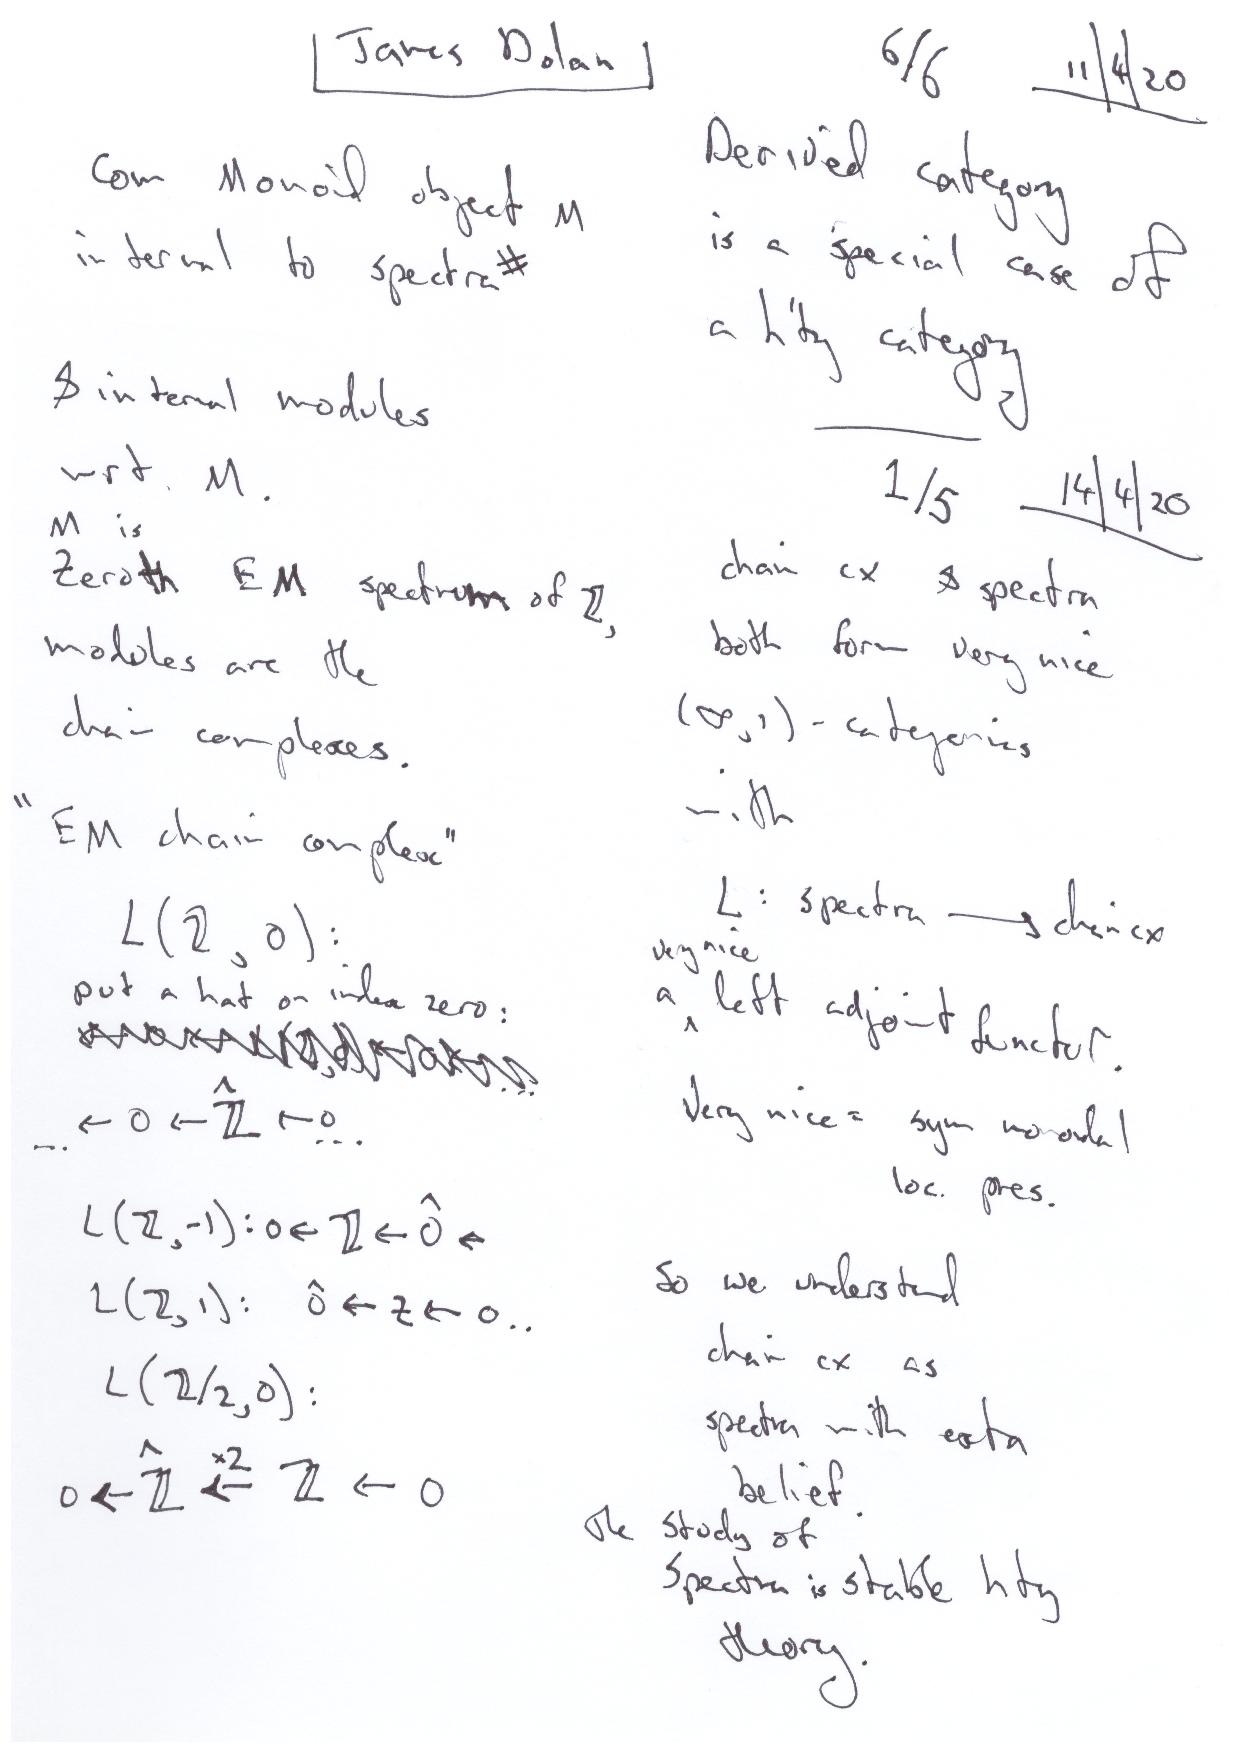 James Dolan
6/6 11/4/20
Com Monoid object M
internal to spectra#
& internal modules
wrt. M.
M is
Zeroth EM spectrum of ℤ,
modules are the
chain complexes.
"EM chain complex"
L(ℤ, 0):
put a hat on index zero:
... ← 0 ← ℤ̂ ← 0 ...
L(ℤ,-1): 0 ← ℤ ← 0̂ ←
L(ℤ,1): 0̂ ← z ← 0..
L(ℤ/2,0):
0 ← ℤ̂ ←×2 ℤ ← 0
Derived category
is a special case of
a h'ty category
1/5 14/4/20
chain cx & spectra
both form very nice
(∞,1)-categories
with
L: spectra → chain cx
very nice
a ^ left adjoint functor.
Very nice = sym monoidal
loc. pres.
So we understand
chain cx as
spectra with extra
belief.
The study of
Spectra is stable hty
theory.